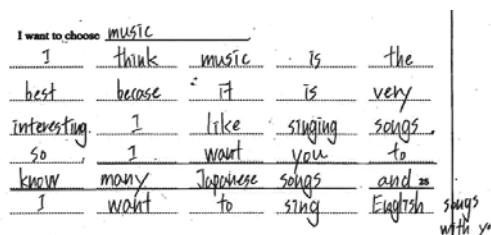 I want to choose music
I think music is the
best becose it is very
interesting. I like singing songs.
so, I want you to
know many Japanese songs and 25
I want to sing English songs
with yo